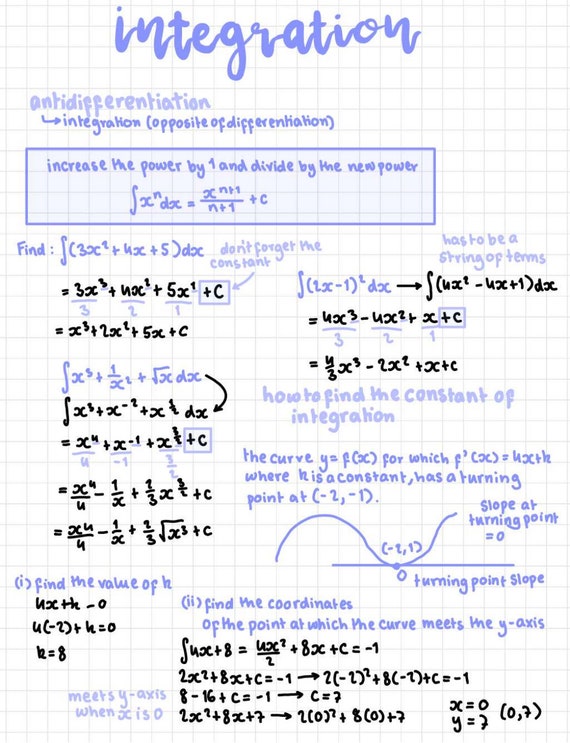 integration
antidifferentiation
↳ integration (opposite of differentiation)
increase the power by 1 and divide by the new power
∫xⁿdx = xⁿ⁺¹/n+1 + c
Find : ∫(3x² + 4x + 5)dx
don't forget the
constant
= 3x³/3 + 4x²/2 + 5x¹/1 + C
= x³ + 2x² + 5x + C
has to be a
string of terms
∫(2x-1)² dx → ∫(4x² - 4x + 1)dx
= 4x³/3 - 4x²/2 + x + C
= 4/3 x³ - 2x² + x + C
∫x³ + 1/x² + √x dx
∫x³ + x⁻² + x^½ dx
= x⁴/4 + x⁻¹/-1 + x^3/2 / 3/2 + C
= x⁴/4 - 1/x + 2/3 x^3/2 + C
= x⁴/4 - 1/x + 2/3 √x³ + C
how to find the constant of
integration
the curve y = f(x) for which f'(x) = 4x+k
where k is a constant, has a turning
point at (-2,-1).
slope at
turning point
= 0
(-2,1)
0
turning point slope
(i) find the value of k
4x + k - 0
4(-2) + k = 0
k = 8
(ii) find the coordinates
of the point at which the curve meets the y-axis
∫4x+8 = 4x²/2 + 8x + C = -1
2x² + 8x + C = -1 → 2(-2)² + 8(-2) + C = -1
8 - 16 + C = -1 → C = 7
meets y-axis
when x is 0
2x² + 8x + 7 → 2(0)² + 8(0) + 7
x = 0
y = 7
(0,7)